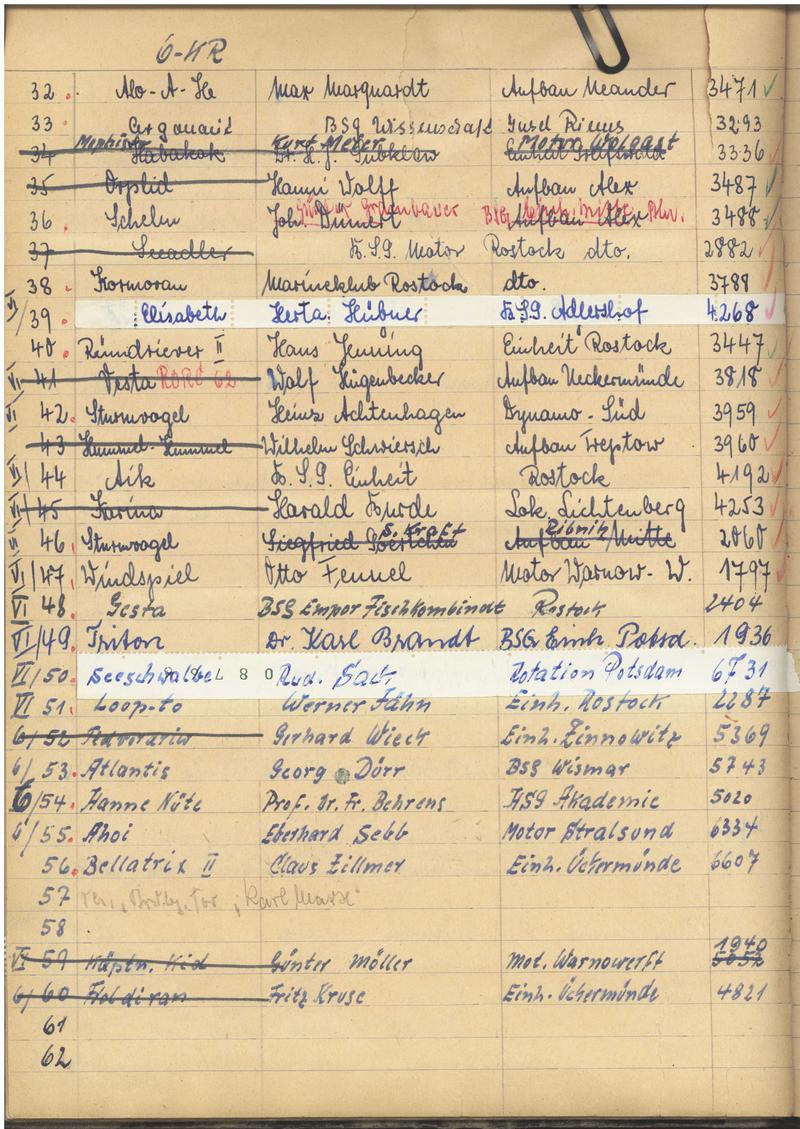 6-KR
32. Alo-A-He Max Marquardt Aufbau Neander 3471
33 BSG Wissenschaft Insel Riems 3293
Kurt Meyer Motor Wolgast
34 Habakok Dr. H. J. Einheit 3336
35 Orplid Hanni Wolff Aufbau Alex 3487
36. Schelm Joh. Aufbau Alex 3488
37 Seeadler B.S.G. Motor Rostock dto. 2882
38. Kormoran Marineklub Rostock dto. 3788
VI/39. Elisabeth Herta Hübner B.S.G. Adlershof 4268
40. II Hans Jenning Einheit Rostock 3447
VI 41 Vesta RORC 62 Wolf Hügenbecker Aufbau Ueckermünde 3818
VI 42. Sturmvogel Heinz Achtenhagen Dynamo-Süd 3959
43 Hummel-Hummel Wilhelm Schwiersch Aufbau Treptow 3960
VI/44 Aik B.S.G. Einheit Rostock 4192
VI/45 Karina Harald Burde Lok. Lichtenberg 4253
S. Kraft Ribnitz
VI 46. Sturmvogel Siegfried Aufbau/Mitte 2060
VI/47. Windspiel Otto Fennel Motor Warnow-W. 1797
VI 48. Gesta BSG Empor Fischkombinat Rostock 2404
VI/49. Triton Dr. Karl Brandt BSG Einh. Potsd. 1936
VI/50. Seeschwalbe Rud. Sack Rotation Potsdam 6731
VI 51. Loop-to Werner Fähn Einh. Rostock 2287
6/52 Gerhard Wieck Einh. Zinnowitz 5369
6/53. Atlantis Georg Dörr BSG Wismar 5743
6/54. Hanne Nüte Prof. Dr. Fr. Behrens HSG Akademie 5020
6/55. Ahoi Eberhard Sebb Motor Stralsund 6334
56. Bellatrix II Claus Zillmer Einh. Ückermünde 6607
57 "Karl Marx"
58
1940
VI 59 Käptn. Kid Günter Möller Mot. Warnowerft 5052
6/60 Fritz Kruse Einh. Ückermünde 4821
61
62